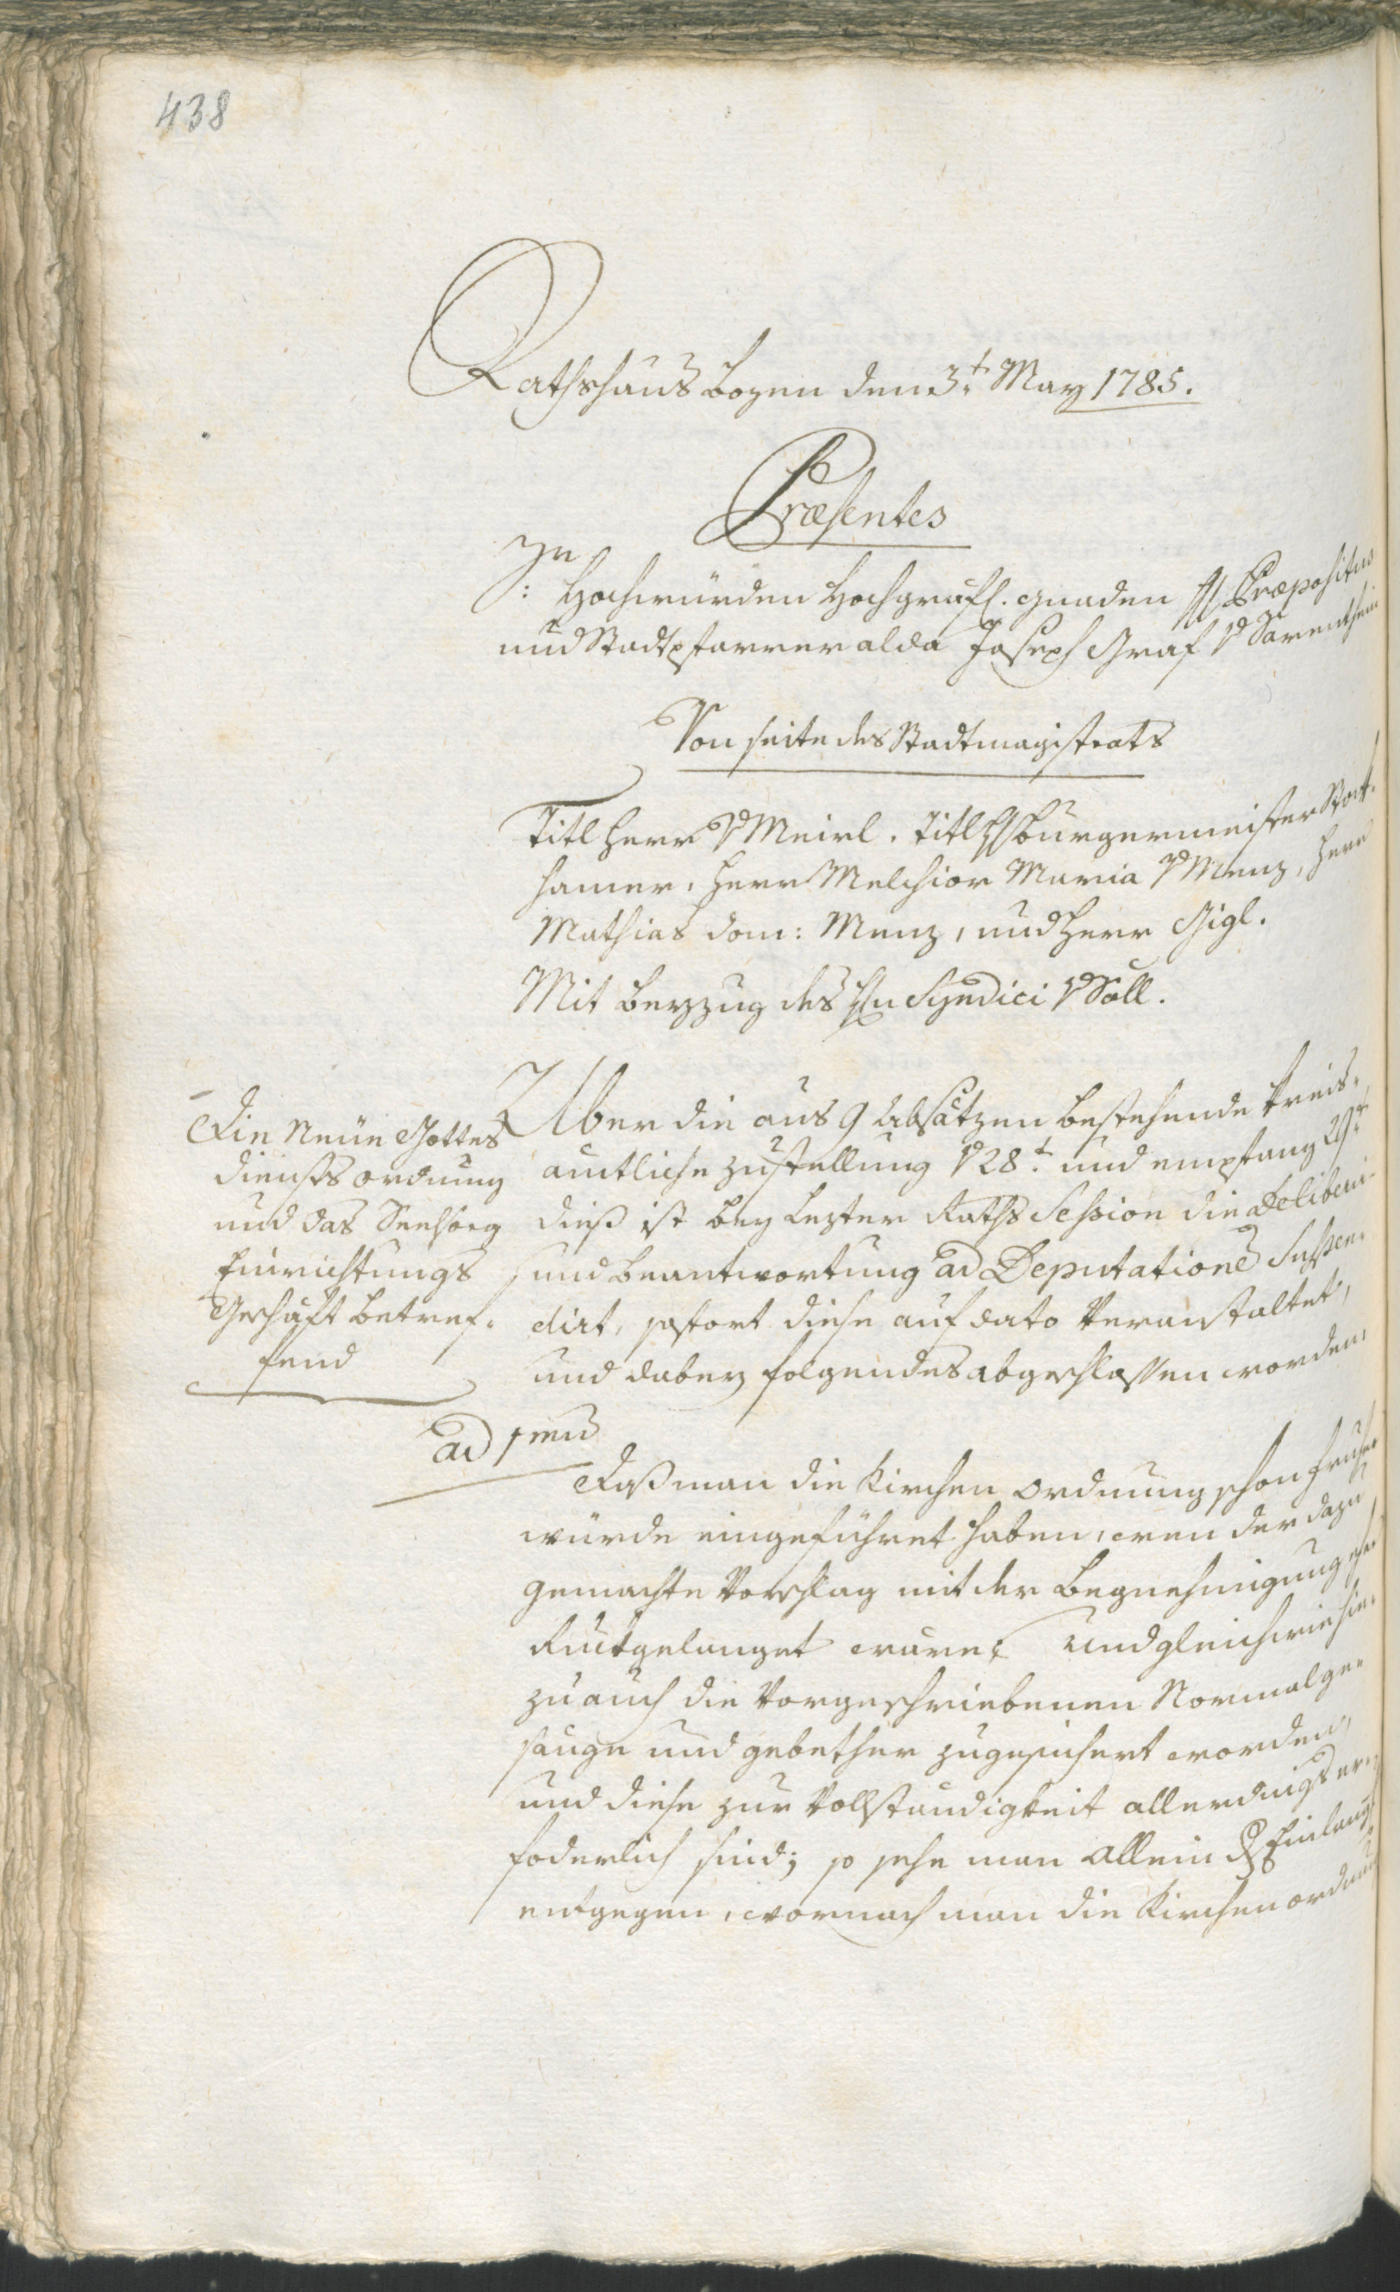 438
Rathshaus Bozen den 3t. May 1785.
Præsentes
In
: Hochwürden Hochgräfl. Gnaden H Præpositus
und Stadtpfarrer alda Joseph Graf v Sarenthein
Von seite des Stadtmagistrats
Titl Herr v Meirl. Titl H Bürgermeister Stock-
hamer, Herr Melchior Maria v Menz, Herr
Mathias dom: Menz, und Herr Gigl.
Mit Beyzug des Hn Syndici v Söll.
Die Neüe Gottes
diensts ordnung
und das Seelsorg
Einrichtungs
Geschäft betref-
fend
Uber die aus 9 Absätzen bestehende Kreis-
amtliche Zustellung v 28t. und empfang 29t
dieß ist bey lezter Raths Session die Deliberi-
und Beantwortung ad Deputationē Suspen-
dirt, sofort diese auf dato Veranstaltet,
und dabey folgendes abgeschlossen worden.
ad 1mū
Daß man die Kirchen ordnung schon früher
würde eingeführet haben, wen der dazu
gemachte Vorschlag mit der Begnehmigung eher
Ruckgelanget wäre; Und gleichwie hie-
zu auch die Vorgeschriebenen Normalge-
sänge und gebether zugesichert worden,
und diese zur Vollständigkeit allerdings er-
foderlich sind; so sehe man Allein Einlang
entgegen, wornach man die Kirchenordnung